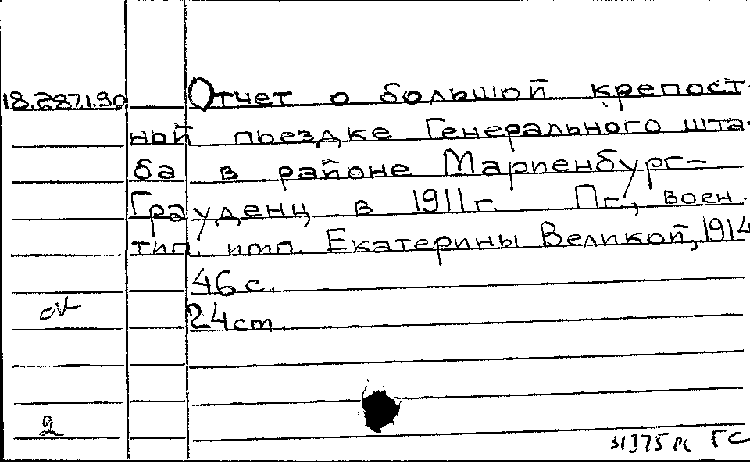 18.287.1.90 Отчет о большой крепост-
ной поездке Генерального шта-
ба в районе Мариенбург-
Грауденц в 1911 г. Пг., воен.
тип. имп. Екатерины Великой, 1914
46 с.
24 cm
2
ГС